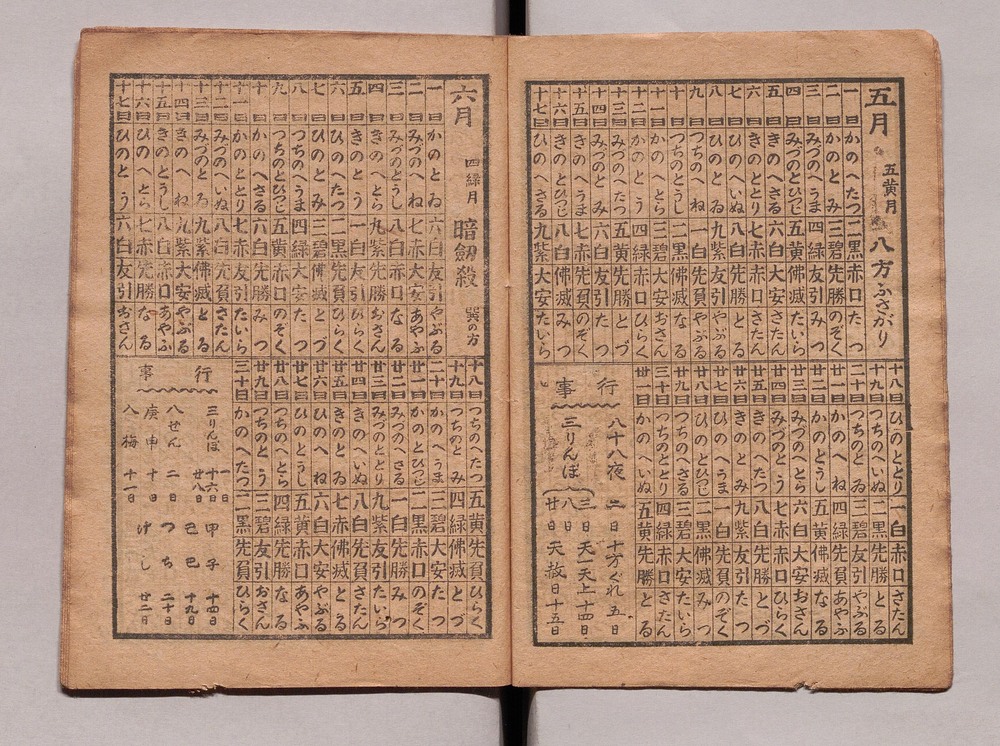 五月 五黄月 八方ふさがり
一日 かのへたつ 二黒 赤口 たつ
二日 かのとみ 三碧 先勝 のぞく
三日 みづのへうま 四緑 友引 みつ
四日 みづのとひつじ 五黄 佛滅 たいら
五日 きのへさる 六白 大安 さたん
六日 きのととり 七赤 赤口 さたん
七日 ひのへいぬ 八白 先勝 とる
八日 ひのとゐ 九紫 友引 やぶる
九日 つちのへね 一白 先負 あやふ
十日 つちのとうし 二黒 佛滅 なる
十一日 かのへとら 三碧 大安 おさん
十二日 かのとう 四緑 赤口 ひらく
十三日 みづのへたつ 五黄 先勝 とづ
十四日 みづのとみ 六白 友引 たつ
十五日 きのへうま 七赤 先負 のぞく
十六日 きのとひつじ 八白 佛滅 みつ
十七日 ひのへさる 九紫 大安 たいら
十八日 ひのととり 一白 赤口 さたん
十九日 つちのへいぬ 二黒 先勝 とる
二十日 つちのとゐ 三碧 友引 やぶる
廿一日 かのへね 四緑 先負 あやふ
廿二日 かのとうし 五黄 佛滅 なる
廿三日 みづのへとら 六白 大安 おさん
廿四日 みづのとう 七赤 赤口 ひらく
廿五日 きのへたつ 八白 先勝 とづ
廿六日 きのとみ 九紫 友引 たつ
廿七日 ひのへうま 一白 先負 のぞく
廿八日 ひのとひつじ 二黒 佛滅 みつ
廿九日 つちのへさる 三碧 大安 たいら
三十日 つちのととり 四緑 赤口 さたん
卅一日 かのへいぬ 五黄 先勝 とる
行事
八十八夜 二日 十方ぐれ 五日
三りんぼ 三日 天一天上 十四日
八日
廿日 天赦日 十五日
六月 四緑月 暗劔殺 巽の方
一日 かのとゐ 六白 友引 やぶる
二日 みづのへね 七赤 大安 あやふ
三日 みづのとうし 八白 赤口 なる
四日 きのへとら 九紫 先勝 おさん
五日 きのとう 一白 友引 ひらく
六日 ひのへたつ 二黒 先負 ひらく
七日 ひのとみ 三碧 佛滅 とづ
八日 つちのへうま 四緑 大安 たつ
九日 つちのとひつじ 五黄 赤口 のぞく
十日 かのへさる 六白 先勝 みつ
十一日 かのととり 七赤 友引 たいら
十二日 みづのへいぬ 八白 先負 さたん
十三日 みづのとゐ 九紫 佛滅 とる
十四日 きのへね 九紫 大安 やぶる
十五日 きのとうし 八白 赤口 あやふ
十六日 ひのへとら 七赤 先勝 なる
十七日 ひのとう 六白 友引 おさん
十八日 つちのへたつ 五黄 先負 ひらく
十九日 つちのとみ 四緑 佛滅 とづ
二十日 かのへうま 三碧 大安 たつ
廿一日 かのとひつじ 二黒 赤口 のぞく
廿二日 みづのへさる 一白 先勝 みつ
廿三日 みづのととり 九紫 友引 たいら
廿四日 きのへいぬ 八白 先負 さたん
廿五日 きのとゐ 七赤 佛滅 とる
廿六日 ひのへね 六白 大安 やぶる
廿七日 ひのとうし 五黄 赤口 あやふ
廿八日 つちのへとら 四緑 先勝 なる
廿九日 つちのとう 三碧 友引 おさん
三十日 かのへたつ 二黒 先負 ひらく
行事
三りんぼ 一日 十六日 廿八日 甲子 十四日
八せん 二日 己巳 十九日
庚申 十日 つち 二十日
八梅 十一日 げし 廿二日